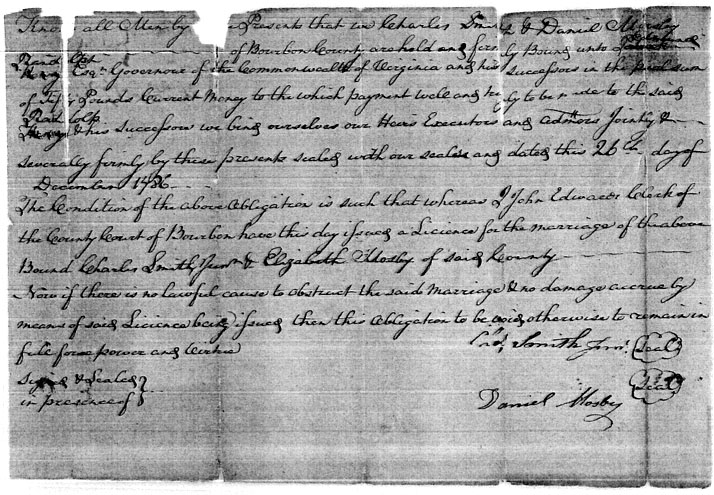 Know all Men by Presents that we Charles Smith & Daniel Mosby
of Bourbon County are held and firmly Bound unto Edmund
Randolph
Esqr Governore of the Commonwealth of Virginia and his successors in the penal sum
of fifty Pounds Current Money to the which payment well and truly to be made to the said
Randolph
Henry & his successors we bind ourselves our Heirs Executors and Admors Jointly &
severally firmly by these presents sealed with our seales and dated this 26th day of
December 1786
The Condition of the above Obligation is such that whereas I John Edwards Clerk of
the County Court of Bourbon have this day issued a Licience for the marriage of the above
Bound Charles Smith Junr & Elizabeth Mosby of said County
Now if there is no lawful cause to obstruct the said Marriage & no damage accrue by
means of said Licience being issued then this Obligation to be void otherwise to remain in
full force power and Virtue
Chas Smith Junr. Seal
Signed & Sealed
in presence of
Seal
Daniel Mosby